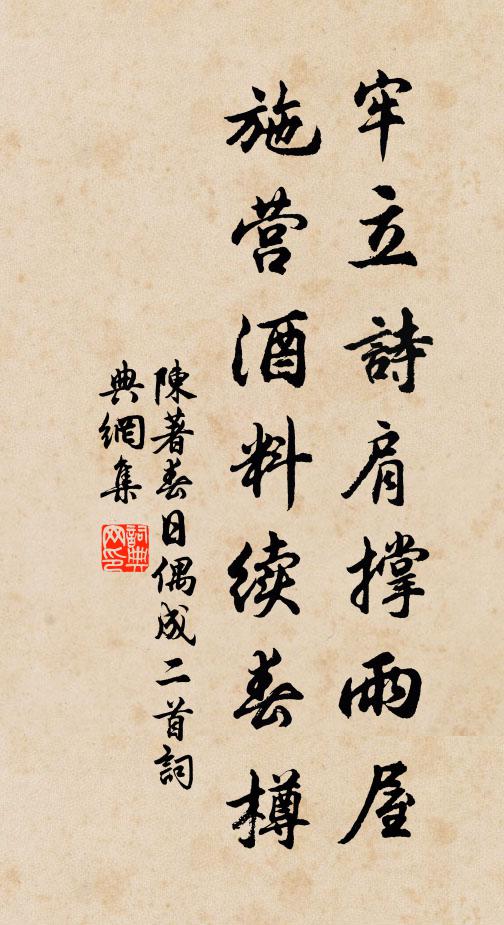 牢立詩肩撐雨屋
施营酒料续春樽
陳著春日偶成二首詞
典網集
詞典
网印